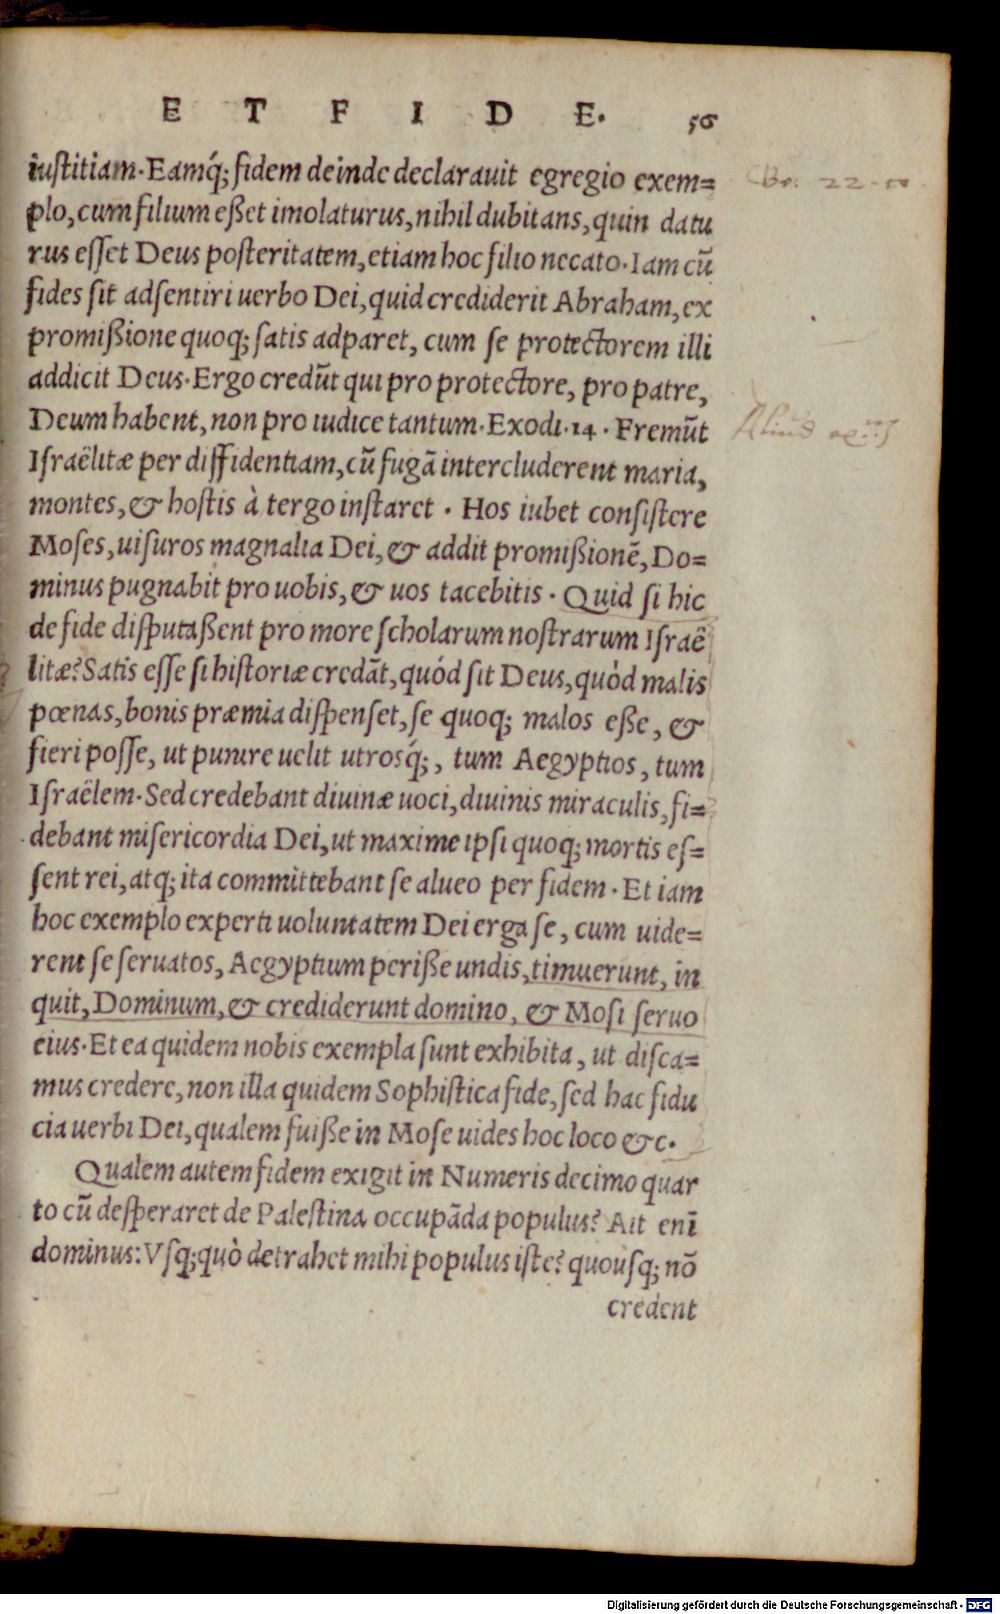 ET FIDE. 56
iustitiam. Eamq́; fidem deinde declarauit egregio exem=
plo, cum filium eßet imolaturus, nihil dubitans, quin datu
rus esset Deus posteritatem, etiam hoc filio necato. Iam cũ
fides sit adsentiri uerbo Dei, quid crediderit Abraham, ex
promißione quoq; satis adparet, cum se protectorem illi
addicit Deus. Ergo credũt qui pro protectore, pro patre,
Deum habent, non pro iudice tantum. Exodi. 14. Fremũt
Israëlitæ per diffidentiam, cũ fugã intercluderent maria,
montes, & hostis à tergo instaret. Hos iubet consistere
Moses, uisuros magnalia Dei, & addit promißionẽ, Do=
minus pugnabit pro uobis, & uos tacebitis. Quid si hic
de fide disputaßent pro more scholarum nostrarum Israë
litæ? Satis esse si historiæ credãt, quód sit Deus, quòd malis
pœnas, bonis præmia dispenset, se quoq; malos eße, &
fieri posse, ut punire uelit utrosq́;, tum Aegyptios, tum
Israëlem. Sed credebant diuinæ uoci, diuinis miraculis, fi=
debant misericordia Dei, ut maxime ipsi quoq; mortis es=
sent rei, atq; ita committebant se alueo per fidem. Et iam
hoc exemplo experti uoluntatem Dei erga se, cum uide=
rent se seruatos, Aegyptium perisse undis, timuerunt, in
quit, Dominum, & crediderunt domino, & Mosi seruo
eius. Et ea quidem nobis exempla sunt exhibita, ut disca=
mus credere, non illa quidem Sophistica fide, sed hac fidu
cia uerbi Dei, qualem fuiße in Mose uides hoc loco &c.
Qualem autem fidem exigit in Numeris decimo quar
to cũ desperaret de Palestina occupãda populus? Ait enĩ
dominus: Vsq; quò detrahet mihi populus iste? quousq; nõ
credent
Digitalisierung gefördert durch die Deutsche Forschungsgemeinschaft - DFG